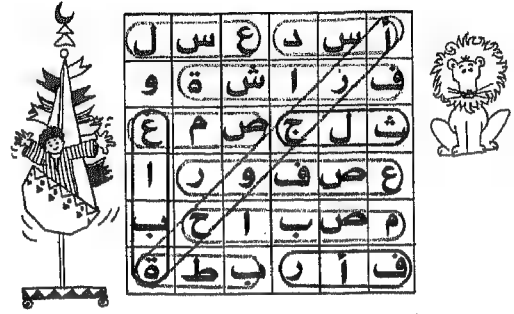 أ س د ع س ل
ف ر ا ش ة و
ث ل ج ص م ع
ع ص ف و ر ا
م ص ب ا ح ب
ف أ ر ب ط ة